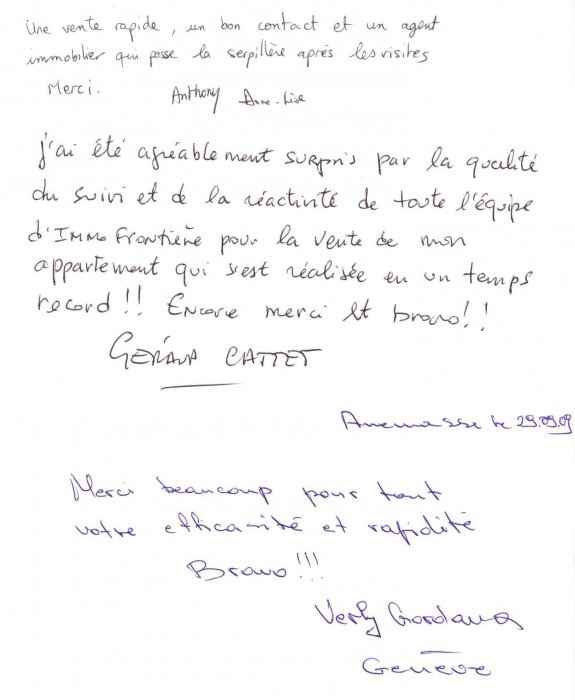 Une vente rapide, un bon contact et un agent
immobilier qui passe la serpillère après les visites
Merci.
Anthony
j'ai été agréablement surpris par la qualité
du suivi et de la réactivité de toute l'équipe
d'Immo Frontière pour la vente de mon
appartement qui s'est réalisée en un temps
record!! Encore merci et bravo!!
GÉRARD CATTET
Annemasse le 29.09.09
Merci beaucoup pour tout
votre efficasité et rapidité
Bravo!!!
Verly Gordana
Genève